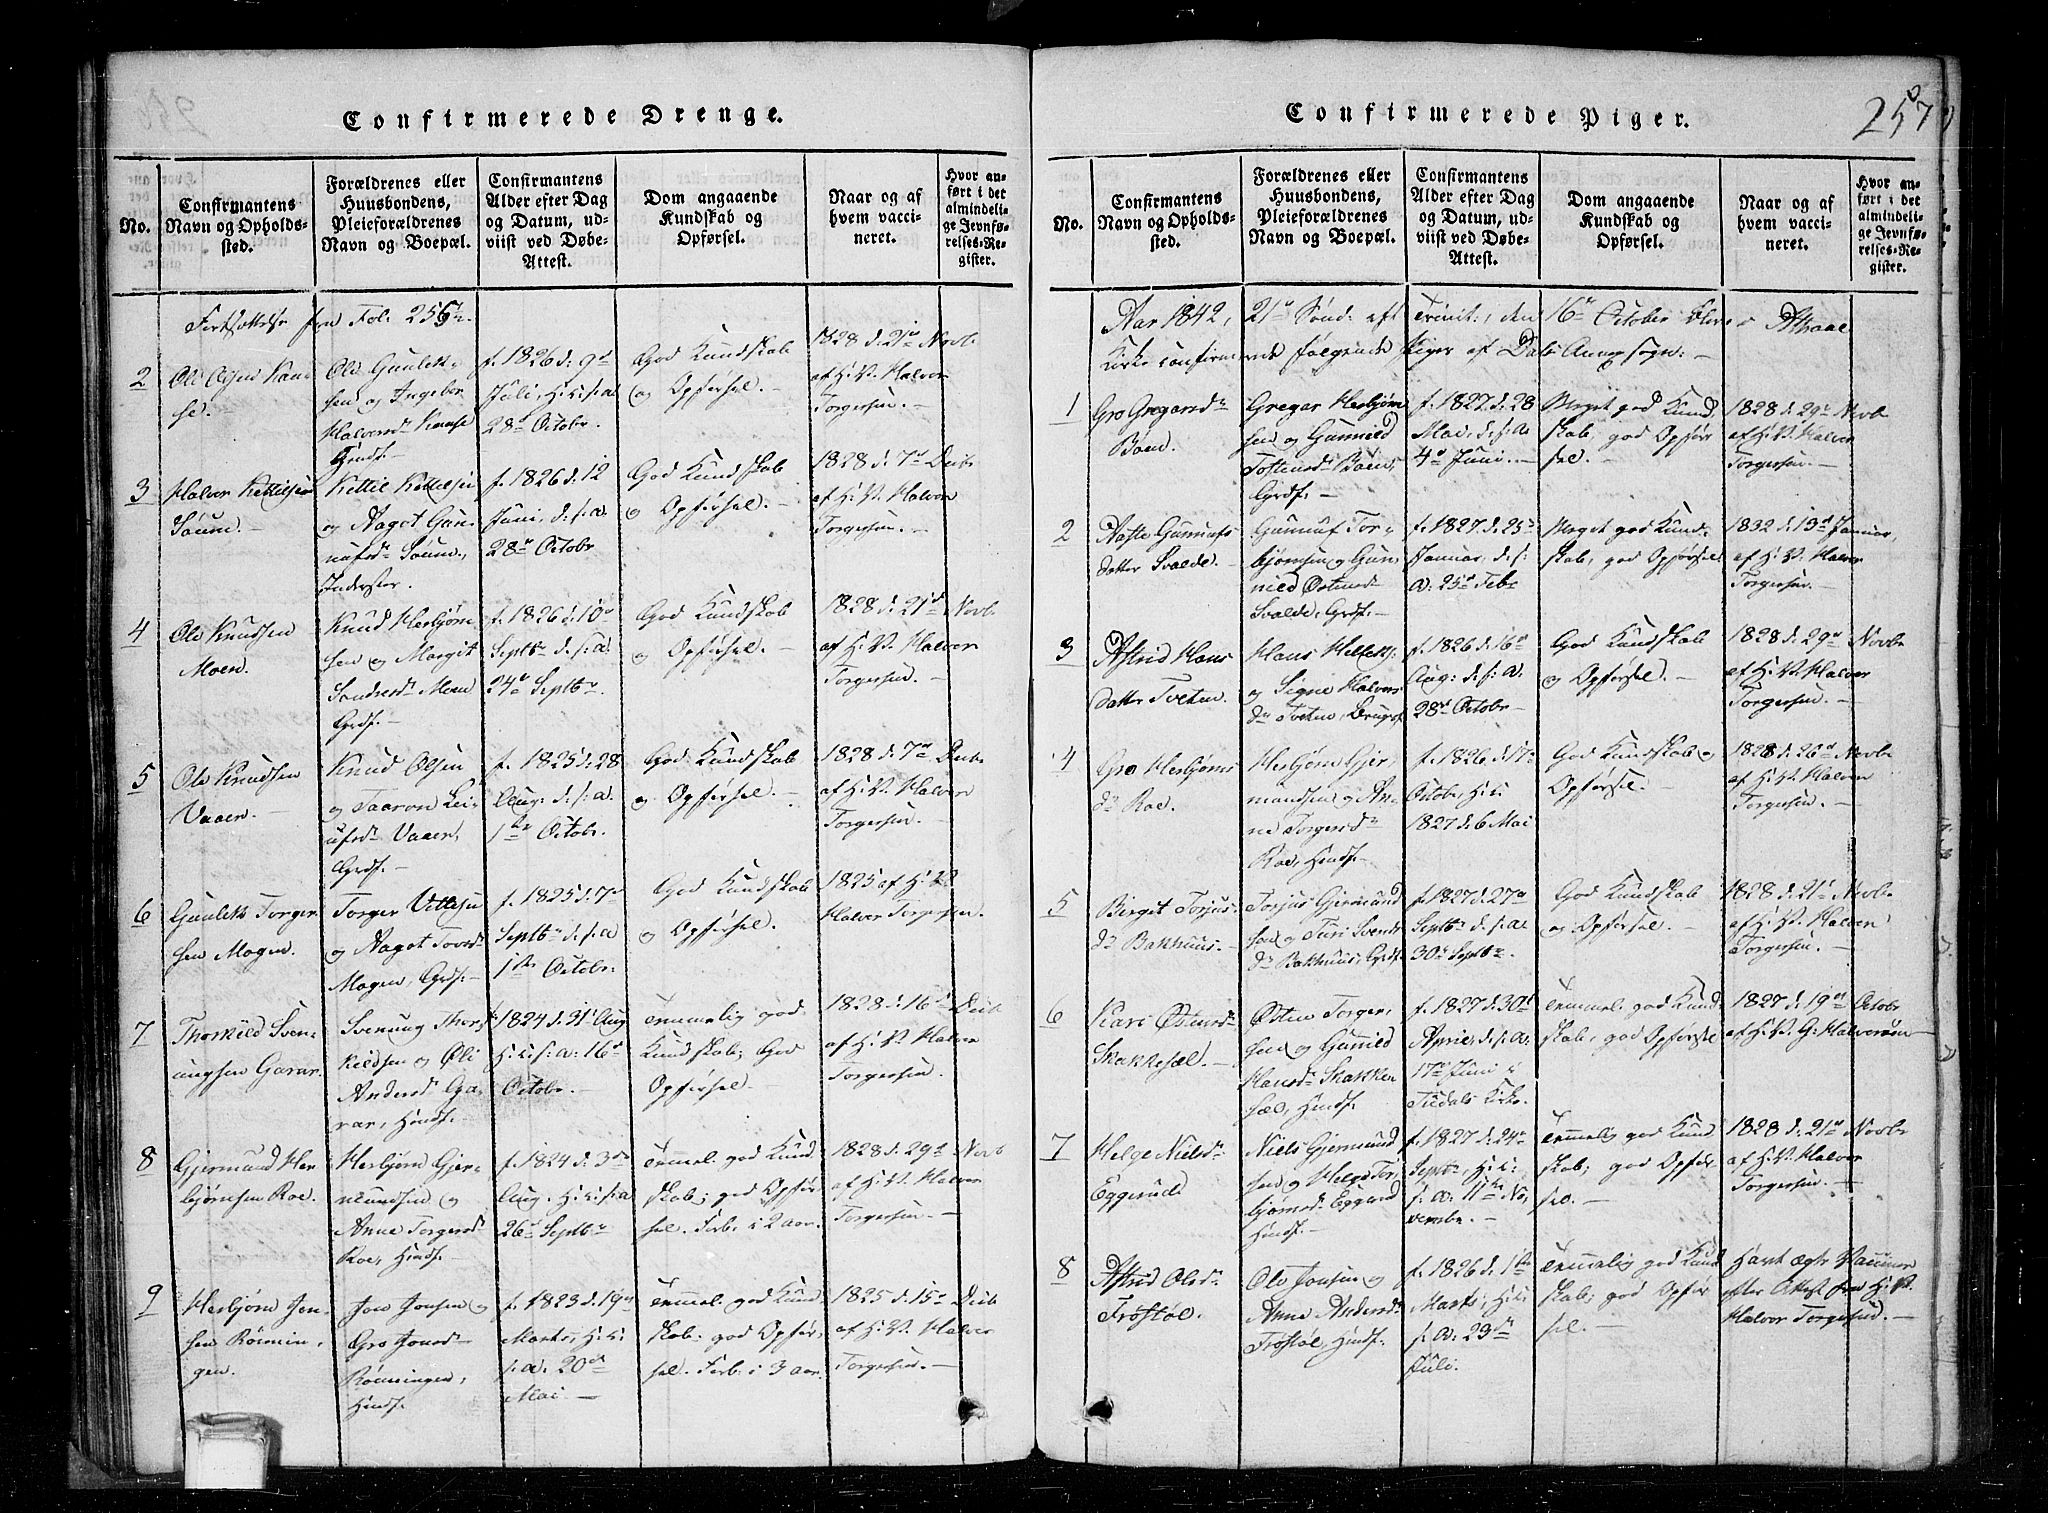 Confirmerede Drenge.
No.
Confirmantens
Navn og Opholds-
sted.
Forældrenes eller
Huusbondens,
Pleieforældrenes
Navn og Boepæl.
Confirmantens
Alder efter Dag
og Datum, ud-
viist ved Døbe-
Attest.
Dom angaaende
Kundskab og
Opførsel.
Naar og af
hvem vacci-
neret.
Hvor an-
ført i det
almindeli-
ge Jevnfø-
relses-Re-
gister.
Fortsættelse fra Fol. 256
2
Ole Olsen
Ole Gunleik-
sen og Ingebor
Halvorsd
f. 1826 d. 9d
Juli, H. i. s. a
28d Octobr.
God Kundskab
og Opførsel. -
1828 d. 21d Novb.
af H. V. Halvor
Torgersen. -
3
Halvor Kettilsen
Kettil Kettilsen
og Aagot Gun-
f. 1826 d. 12
Juni, d. s. a.
28d Octobr
God Kundskab
og Opførsel. -
1828 d. 7d Decb.
af H. V. Halvor
Torgersen. -
4
Ole Knudsen
Moen.
Knud Herbjørn
sen og Margit
Sondresd Moen
Grdf. -
f. 1826 d. 10d
Septbr d. s. a.
24d Septbr
God Kundskab
og Opførsel. -
1828 d. 21d Novb.
af H. V. Halvor
Torgersen. -
5
Ole Knudsen
Vaaen. -
Knud Olsen
og Taaron Lei-
ufsd Vaaen,
Grdf. -
f. 1825 d. 28
Aug. d. s. a.
1ste Octobr.
God Kundskab
og Opførsel. -
1828 d. 7d Decb.
af H. V. Halvor
Torgersen. -
6
Gunleik Torger
sen Mogen.
Torger Vetlesen
og Aagot Tovsd
Mogen, Grdf. -
f. 1825 d. 7d
Septbr d. s. a
1ste Octobr.
God Kundskab
og Opførsel. -
1825 af H. V.
Halvor Torgersen.
7
Thorkild Sven-
ungsen Garar.
Svenung Thor-
kildsen og
Andersd Ga-
rar, Huusf.
f. 1824 d. 31 Aug
H. i. s. a. 16d
Octobr. -
Temmelig god
Kundskab; God
Opførsel. -
1828 d. 16d Decb
af H. V. Halvor
Torgersen.
8
Gjermund Her
bjørnsen Roe.
Herbjørn Gjer-
mundsen og
Anne Torgersd
Roe, Huusf. -
f. 1824 d. 3d
Aug. H. i. s. a
26d Septbr
Temmel. god Kund
skab; god Opfør-
sel. Forb. i 2 aar.
1828 d. 29d Novb
af H. V. Halvor
Torgersen. -
9
Herbjørn Jon-
sen Rønnin-
gen.
Jon Jonsen og
Gro Jonsd
Rønningen,
Huusf.
f. 1823 d. 19d
Marts, H. i.
s. a. 20d
Mai. -
Temmel. god Kund
skab; god Opfør-
sel. Forb. i 3 aar.
1825 d. 15d Decb
af H. V. Halvor
Torgersen. -
Confirmerede Piger.
257
No.
Confirmantens
Navn og Opholds-
sted.
Forældrenes eller
Huusbondens,
Pleieforældrenes
Navn og Boepæl.
Confirmantens
Alder efter Dag
og Datum, ud-
viist ved Døbe-
Attest.
Dom angaaende
Kundskab og
Opførsel.
Naar og af
hvem vacci-
neret.
Hvor an-
ført i det
almindeli-
ge Jevnfø-
relses-Re-
gister.
Aar 1842, 21d Sönd. eft Trinit., den 16d October blev i Atraae
Kirke confirmerede følgende Piger af Dals Annexsogn: -
1
Gro Gregarsdr
Boen.
Gregar Herbjørn
sen og Gunnild
Tostensd Boen,
Grdf. -
f. 1827 d. 28
Mai, d. s. a.
4d Juni. -
Meget god Kund
skab, god Opfør
sel. -
1828 d. 29d Novb.
af H. V. Halvor
Torgersen. -
2
Aaste Gunnufs
datter Svalde. -
Gunnuf Tor-
bjørnsen og Gun-
nild Østensd
Svalde, Grdf. -
f. 1827 d. 25d
Januar, d. s.
a. 25d Feb.
Meget god Kund-
skab, god Opførsel
1832 d. 13d Januar,
af H. V. Halvor
Torgersen. -
3
Astrid Hans
datter Tveten.
Hans
og Signe Halvors
dr Tveten, Brugsf.
f. 1826 d. 16d
Aug. d. s. a.
28d Octobr -
God Kundskab
og Opførsel. -
1828 d. 29d Novb.
af H. V. Halvor
Torgersen. -
4
Gro Herbjørns
dr Roe. -
Herbjørn Gjer,
mundsen og An-
ne Torgersdr
Roe, Huusf. -
f. 1826 d. 17d
Octobr, H. i.
1827 d. 6 Mai
God Kundskab og
Opførsel. -
1828 d. 26d Novb.
af H. V. Halvor
Torgersen. -
5
Birgit Torjus-
dr Bakhuus. -
Torjus Gjermund
sen og Turi Svends
dr Bakhuus, Grdf.
f. 1827 d. 27d
Septbr d. s. a.
30d Septbr.
God Kundskab
og Opførsel. -
1828 d. 21d Novb.
af H. V. Halvor
Torgersen. -
6
Kari Østensdr
Skakkesæl. -
Østen Torger-
sen og Gunnild
Hansdr Skakke
sæl, Huusf.
f. 1827 d. 30d
April, d. s. a.
17d Juni i
Tudals Kirke.
Temmel. god Kund
skab, god Opførsel
1827 d. 19d Octobr
af H. V. G. Halvorsen -
7
Helge Nielsdr
Eggerude
Niels Gjermund
sen og Helge Tor-
bjørnsd Eggerud
Huusf. -
f. 1827 d. 24d
Septbr, H. i.
s. a. 11te No-
vembr. -
Temmelig god Kund
skab; god Opfør
sel. -
1828 d. 21d Novb
af H. V. Halvor
Torgersen. -
8
Astrid Olsdr
Frøstøl.
Ole Jonsen og
Anne Andersdr
Frøstøl, Huusf.
f. 1826 d. 1ste
Marts, H. i.
s. a. 23de
Juli.
Temmelig god Kund
skab; god Opfør
sel. -
Havt ægte Vacciner
efter Attest fra H. V.
Halvor Torgersen. -